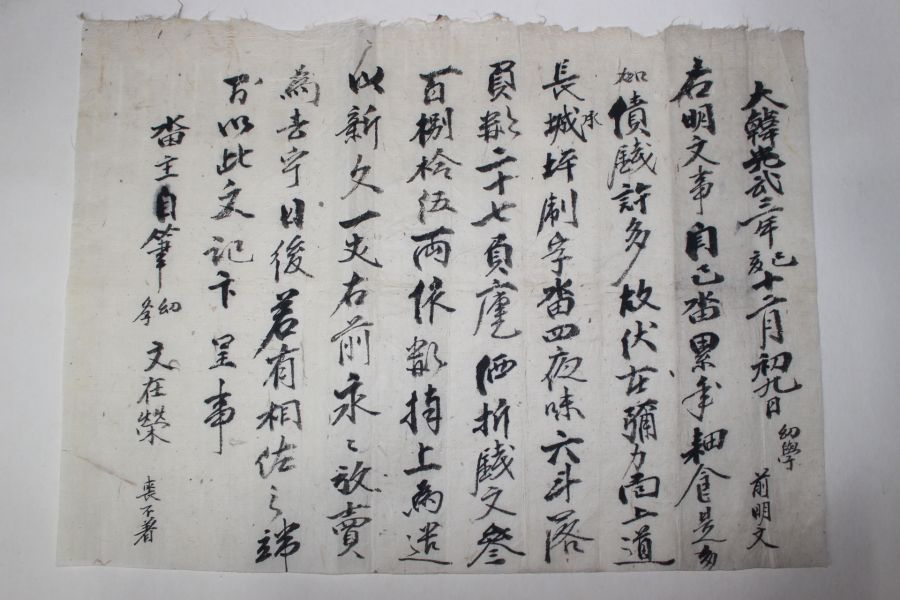 大韓光武三年己亥十二月初九日 幼學 前明文
右明文事自己畓累年耕食是多
如債錢許多故伏在彌力面上道
長城水坪制字畓四夜味六斗落
負數二十七負庫乙折錢文叄
百捌拾伍兩依數捧上爲遣
以新文一丈右前永永放賣
爲去乎日後若有相佐之端
則以此文記卞呈事
畓主自筆 幼學 文在榮 喪不着